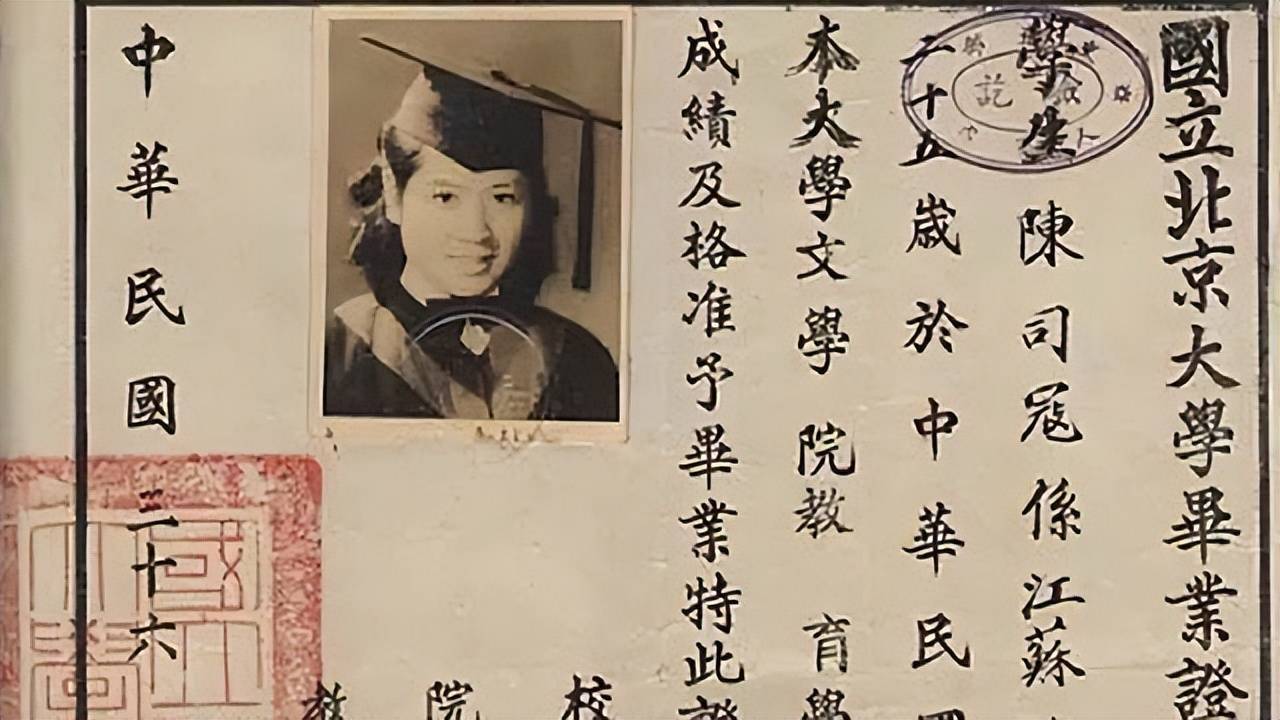 國立北京大學畢業證
學生陳司寇係江蘇
二十五歲於中華民國
本大學文學院教育學
成績及格准予畢業特此證
校
院
中華民國三十六